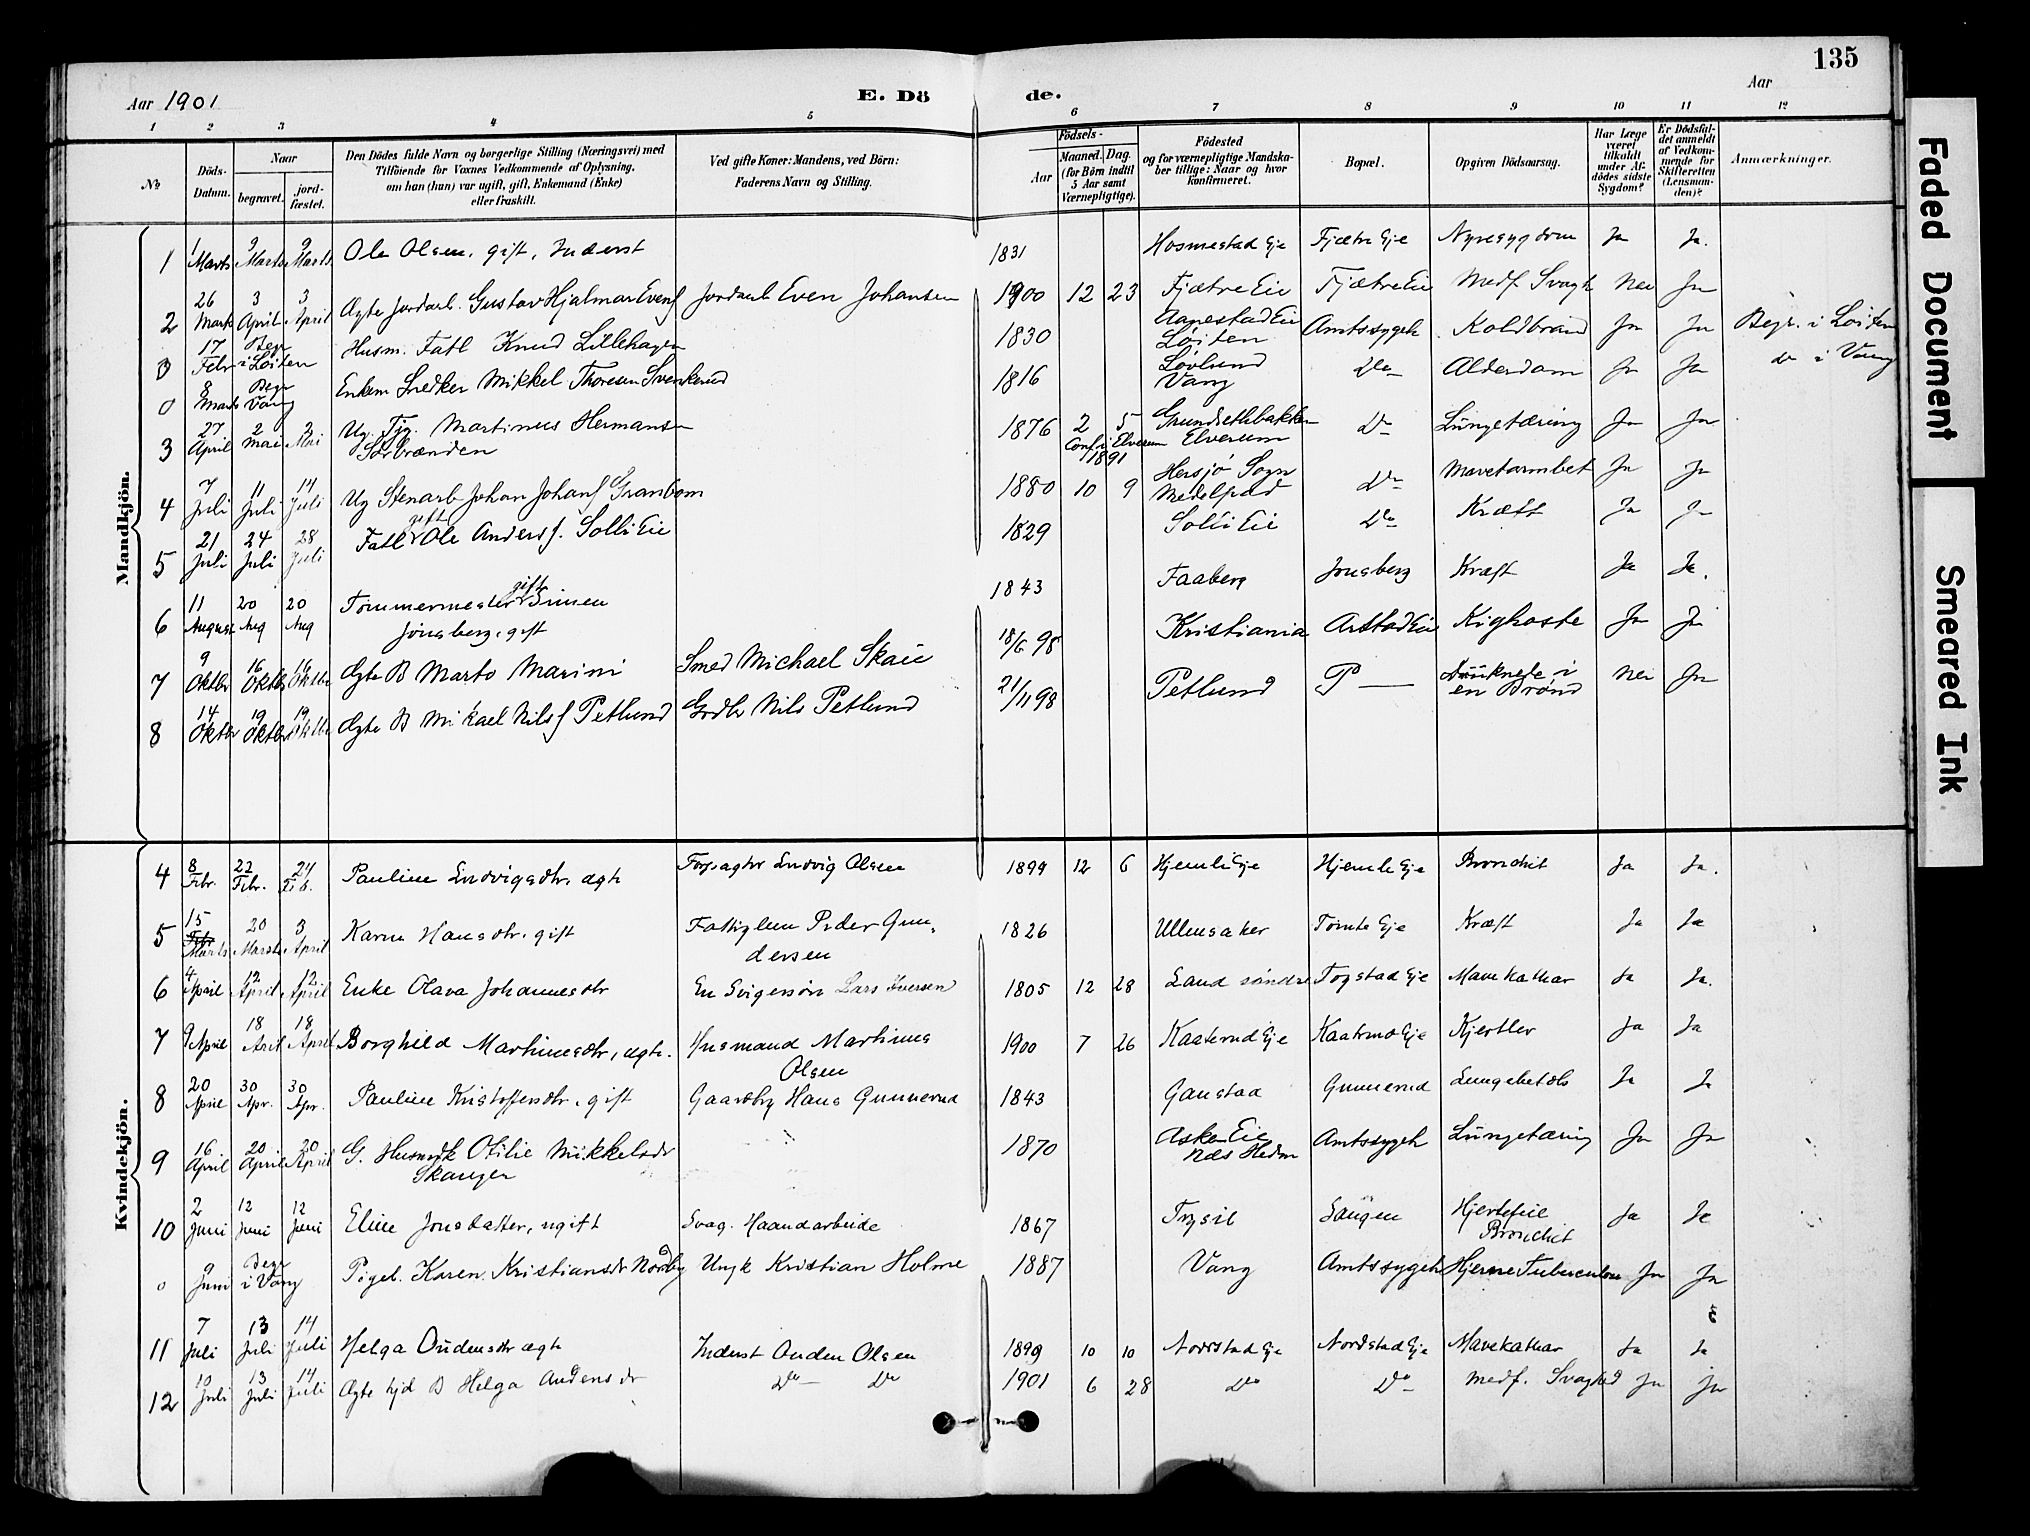 135
Aar 1901
E. Dö de.
Aar
1 2 3 4 5 6 7 8 9 10 11 12
No
Döds-Datum.
Naar
begravet.
jord-fæstet.
Den Dödes fulde Navn og borgerlige Stilling (Næringsvei) med
Tilföiende for Voxnes Vedkommende af Oplysning,
om han (hun) var ugift, gift, Enkemand (Enke)
eller fraskilt.
Ved gifte Koner: Mandens, ved Börn:
Faderens Navn og Stilling.
Födsels-
Aar
Maaned. Dag.
(for Börn indtil
5 Aar samt
Værnepligtige).
Födested
og for værnepligtige Mandska-
ber tillige: Naar og hvor
konfirmeret.
Bopæl.
Opgiven Dödsaarsag.
Har Læge
været
tilkaldt
under Af-
dödes sidste
Sygdom?
Er Dödsfal-
det anmeldt
af Vedkom-
mende for
Skifteretten
(Lensman-
den)?
Anmærkninger.
Mandkjön.
1 1 Marts 9 Marts 9 Marts Ole Olsen, gift, Inderst 1831 Hosmestad Eje Fjætre Eje Nyresygdom Ja Ja.
2 26 Marts 3 April 3 April Ægte Jordarb. Gustav Hjalmar Evens Jordarb Even Johansen 1900 12 23 Fjætre Eie Fjætre Eie Medf. Svagh Nei Ja
17 Febr Begr i Löiten Husm. Fatl Knud Lillehagen 1830 Aanestad Eie Löiten Amtssygeh Koldbrand Ja Ja Begr. i Löiten
0 8 Marts Begr Vang Enkem Snedker Mikkel Thoresen Svenkerud 1816 Lövlund Vang Do Alderdom Ja Ja do i Vang
3 27 April 2 Mai 2 Mai Ug. Tjg. Martinus Hermansen Sörbrænden 1876 2 5 Conf. i Elverum 1891 Grundsethbakken Elverum Do Lungetæring Ja Ja
4 7 Juli 11 Juli 14 Juli Ug Stenarb Johan Johans Granbom 1880 10 9 Hersjö Sogn Medelpad Do Mavetarmbet Ja Ja
5 21 Juli 24 Juli 28 Juli Fatl gift Ole Anders. Solli Eie 1829 Solli Eie Do Kræft Ja Ja
6 11 August 20 Aug 20 Aug Tömmermester gift Simen
Jönsberg, gift 1843 Faaberg Jönsberg Kræft Ja Ja.
7 9 Oktbr 16 Oktbr 16 Oktbr Ægte B Marto Marini Smed Michael Skaie 18/6 98 Kristiania Arstad Eie Kighoste Ja Ja
8 14 Oktbr 19 Oktbr 19 Oktbr Ægte B Mikael Nils Petlund Grdbr Nils Petlund 21/11 98 Petlund P — Druknede i en Brönd Nei Ja
Kvindekjön.
4 8 Febr. 22 Febr. 24 Feb. Pauline Ludvigsdtr, ægte Forpagter Ludvig Olsen 1899 12 6 Hjemli Eje Hjemle Eje Bronchit Ja Ja.
5 15 Marts 20 Marts 3 April Karen Hansdtr, gift Fattiglem Peder Gun-
dersen 1826 Ullensaker Tomte Eje Kræft Ja Ja
6 4 April 12 April 12 April Enke Olava Johannesdtr En Svigersön Lars Iversen 1805 12 28 Land söndre Togstad Eje Mavekathar Ja Ja.
7 9 April 18 April 18 April Borghild Martinusdtr, ægte. Husmand Martinus
Olsen 1900 7 26 Kaaterud Eje Kaaterud Eje Kjertler Ja Ja
8 20 April 30 Apr. 30 Apr. Pauline Kristoffersdtr, gift Gaardbrg Hans Gunnerud 1843 Gaustad Gunnerud Lungebetds Ja Ja
9 16 April 20 April 20 April G. Husmdk Otilie Mikkelsdr
Skanger 1870 Aske Eie
Næs Hedm Amtssygeh Lungetæring Ja Ja
10 2 Juni 12 Juni 12 Juni Eline Jonsdatter, ugift Svag. Haandarbeide 1867 Trysil Saugen Hjertefeil
Bronchit Ja Ja
0 9 Juni Begr i Vang Pigeb. Karen Kristiansdr Nordby Ungk Kristian Holme 1887 Vang Amtssygeh Hjerne Tuberculose Ja Ja
11 7 Juli 13 Juli 14 Juli Helga Oudensdtr ægte Inderst Ouden Olsen 1899 10 10 Nordstad Eje Nordstad Eje Mavekathar Ja Ja
12 10 Juli 13 Juli 14 Juli Ægte hjd B Helga Audensdr Do — Do 1901 6 28 Do Do Medf. Svaghed Ja Ja
Faded Document
Smeared Ink